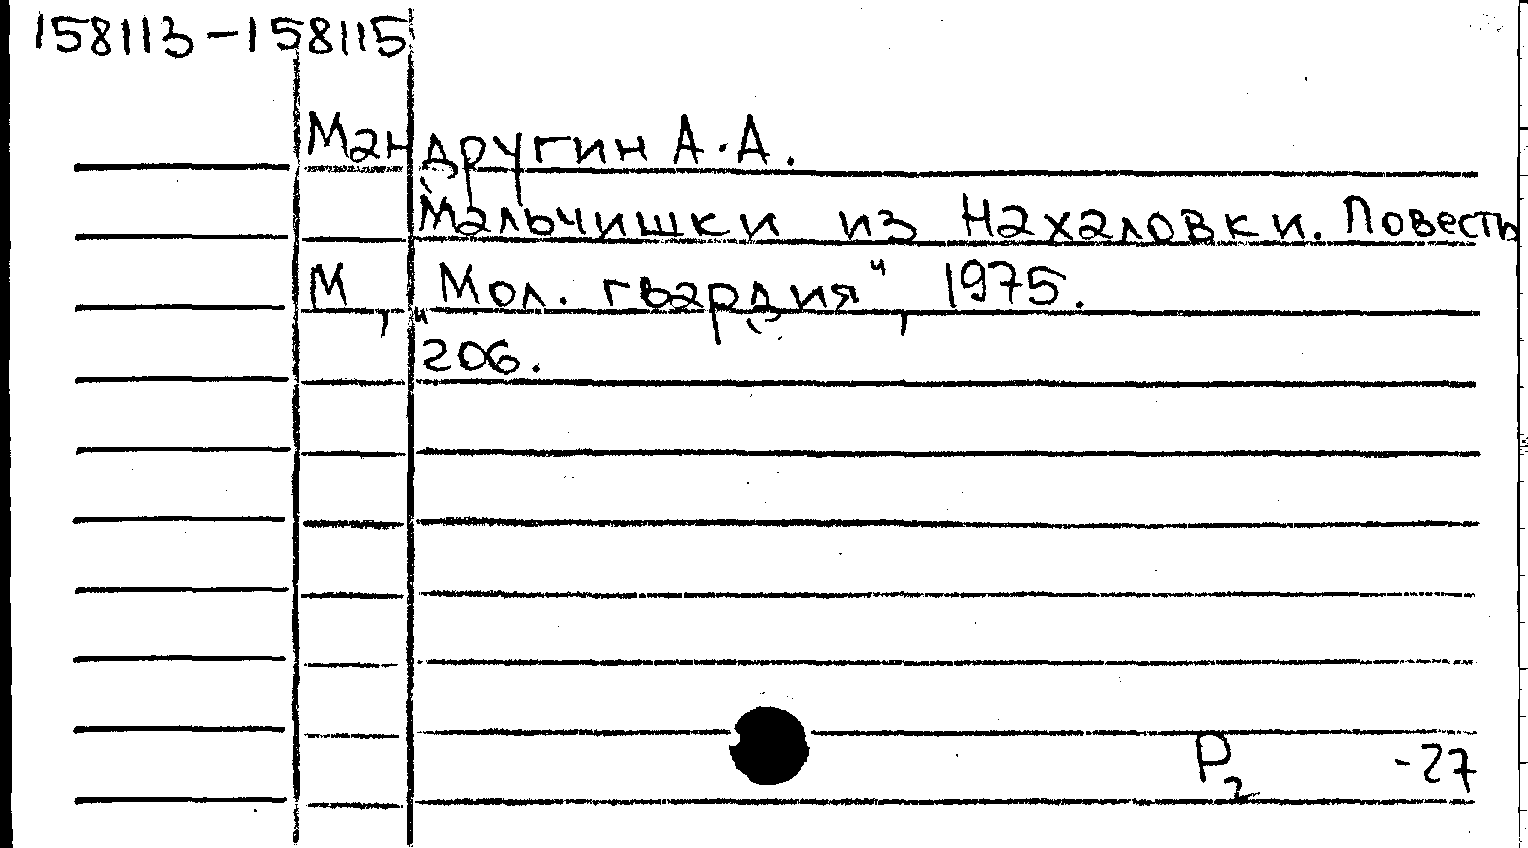 158113-158115
Мандругин А.А.
Мальчишки из Нахаловки. Повесть
М, "Мол. гвардия", 1975.
206.
Р2 -27